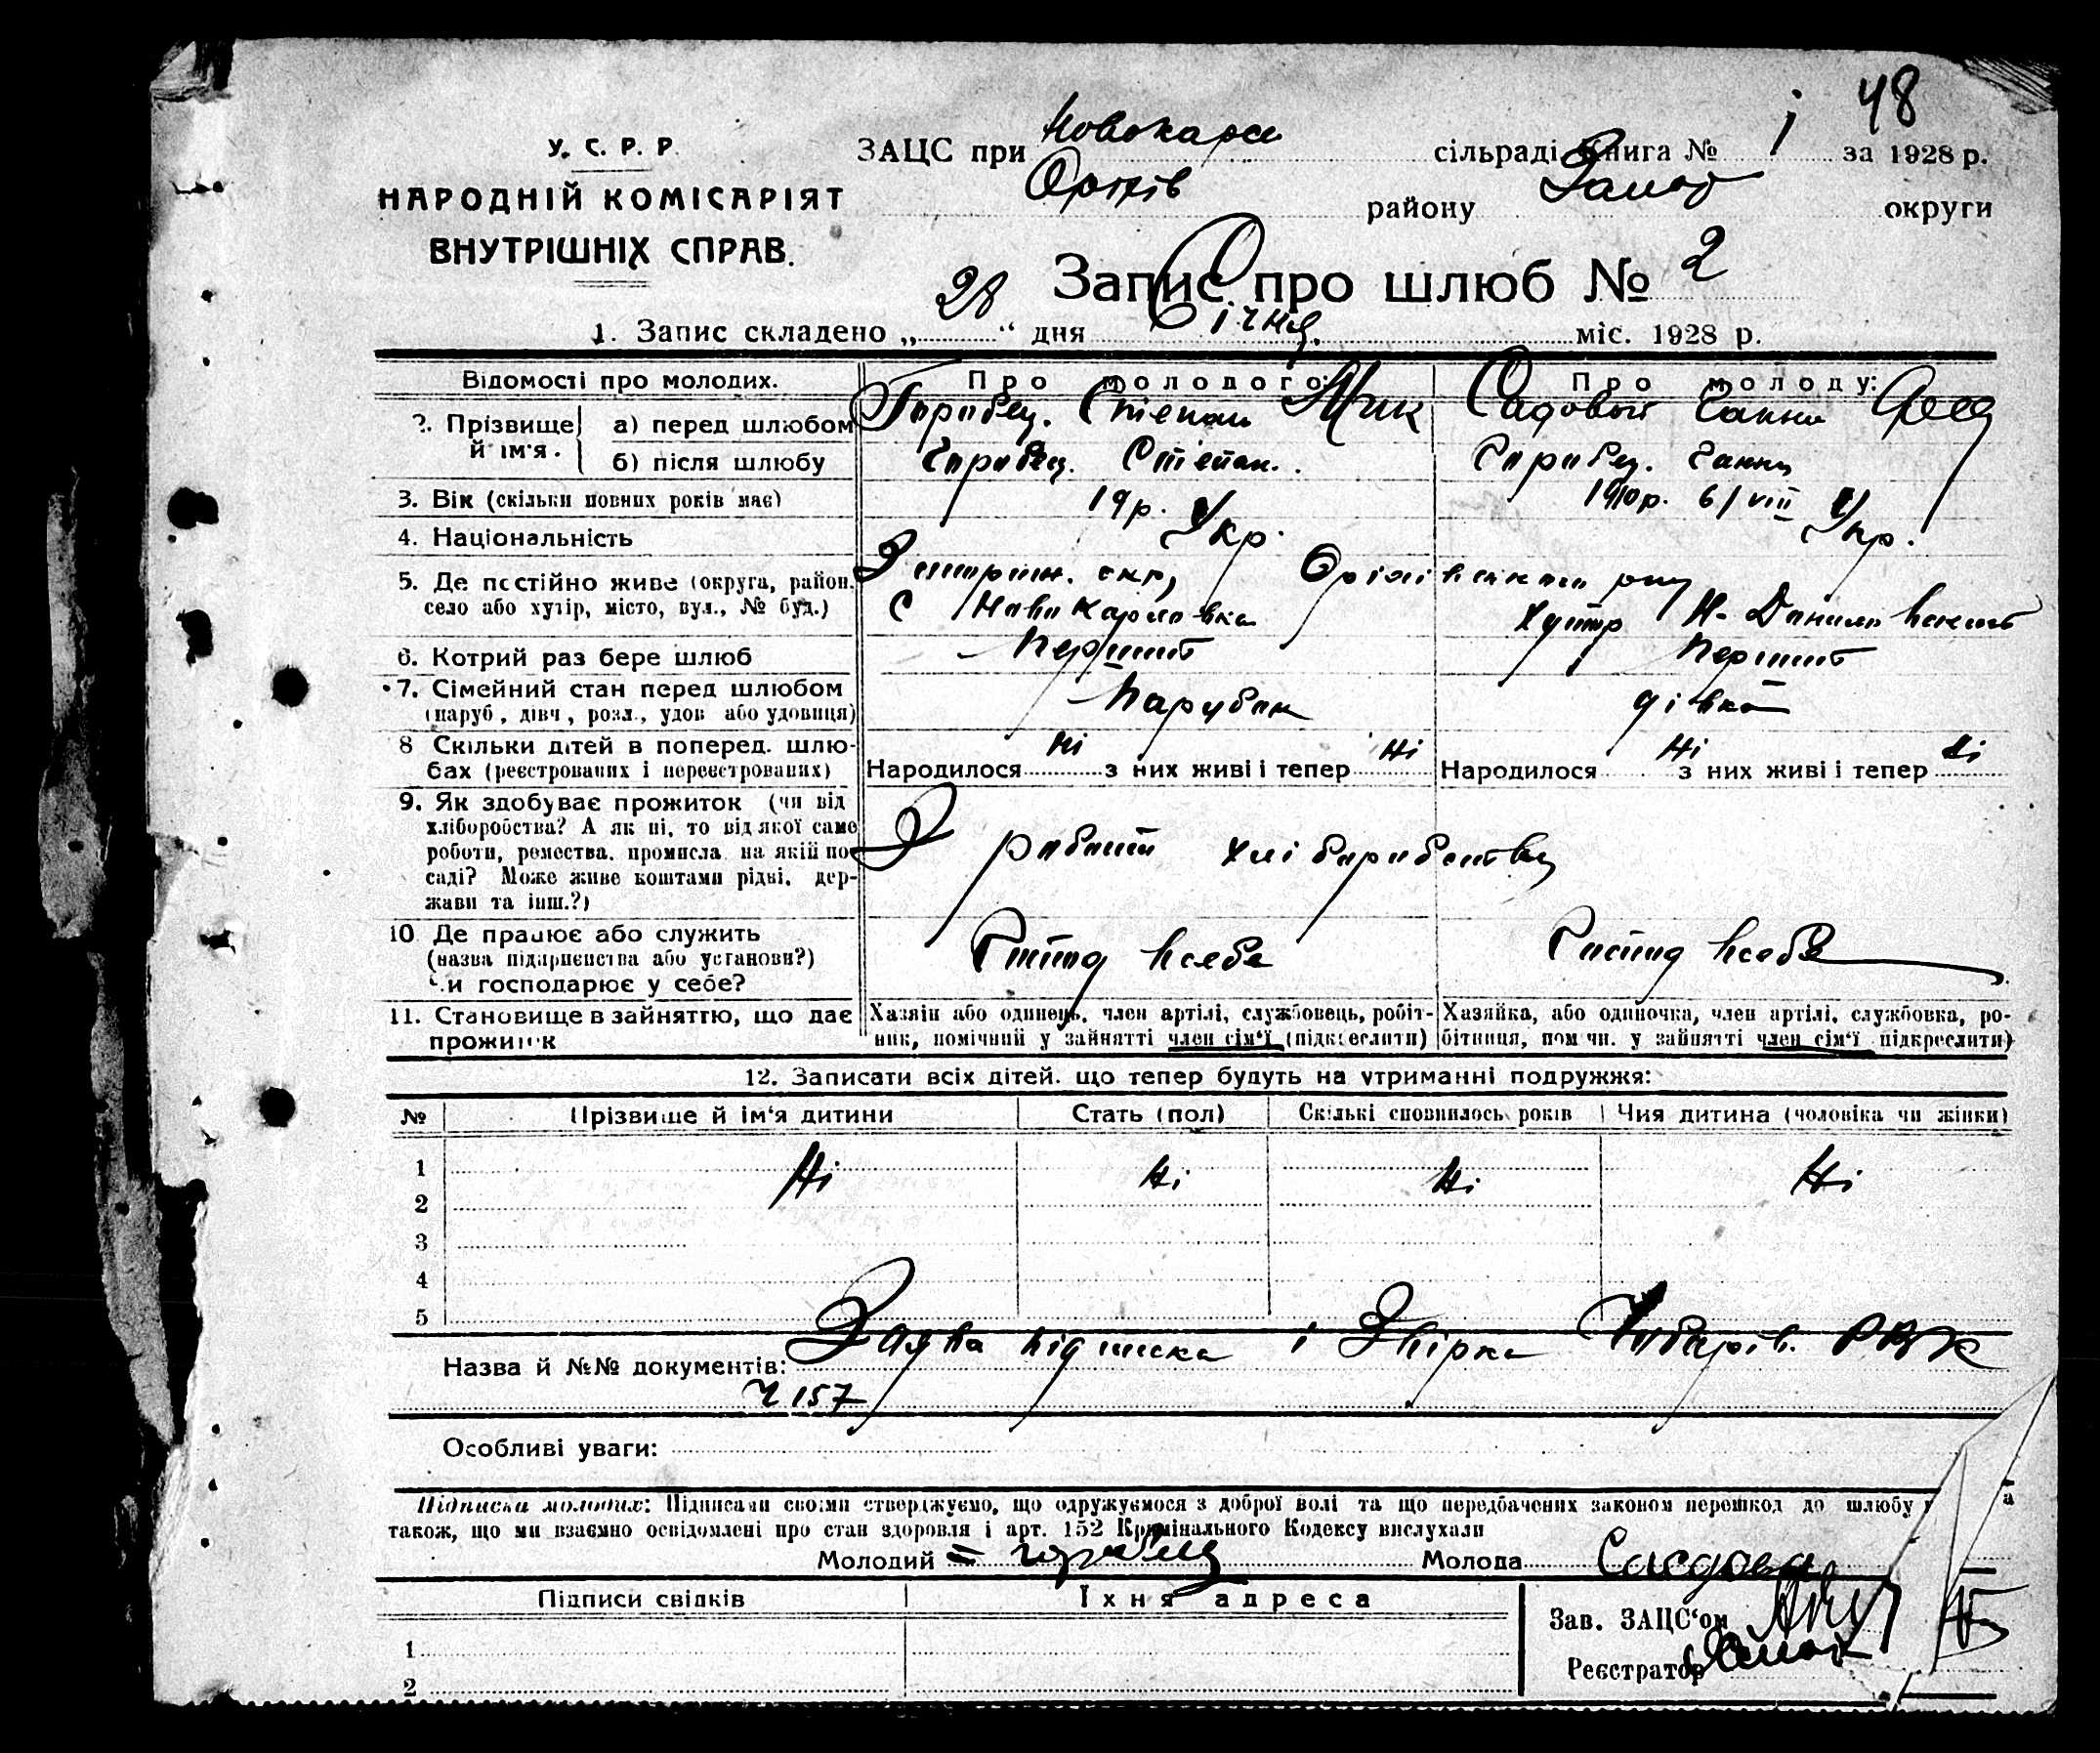 48
У. С. Р. Р.
НАРОДНІЙ КОМІСАРІЯТ
ВНУТРІШНІХ СПРАВ.
ЗАЦС при Новокарл сільраді Книга № 1 за 1928 р.
Оріхів району Запор округи
Запис про шлюб № 2
1. Запис складено „28“ дня Січня міс. 1928 р.
Відомості про молодих. Про молодого: Про молоду:
2. Прізвище й ім'я. а) перед шлюбом Горобец. Степан Садовая Ганна
б) після шлюбу Горобец. Степан. Горобец. Ганна
3. Вік (скільки повних років має) 19р. 1910р. 6/VIII
4. Національність Укр. Укр.
5. Де постійно живе (округа, район, село або хутір, місто, вул., № буд.) Запоріж. окр, Оріхівського рну
С Ново Карловка Хутір Н-
6. Котрий раз бере шлюб Перший Перший
7. Сімейний стан перед шлюбом (паруб, дівч, розл., удов або удовиця) Парубок дівка
8 Скільки дітей в поперед. шлюбах (реєстрованих і нереєстрованих) Народилося Ні з них живі і тепер Ні Народилося Ні з них живі і тепер Ні
9. Як здобуває прожиток (чи від хліборобства? А як ні, то від якої само роботи, ремества, промисла, на якій посаді? Може живе коштами рідні, держави та інш.?) З работи хліборобства
10 Де працює або служить (назва підприємства або установи?) Чи господарює у себе? Господ в себе Господ в себе
11. Становище в зайняттю, що дає прожиток Хазяін або одинець, член артілі, службовець, робітник, помічний у зайнятті член сім'ї (підкреслити) Хазяйка, або одиночка, член артілі, службовка, робітниця, пом чн. у зайнятті член сім'ї підкреслити)
12. Записати всіх дітей. що тепер будуть на утриманні подружжя:
№ Прізвище й ім'я дитини Стать (пол) Скількі сповнилось років Чия дитина (чоловіка чи жінки)
1 Ні Ні Ні Ні
2
3
4
5
Назва й №№ документів: Заява підписка і Звірка РВК
Ч 157
Особливі уваги:
Підписка молодих: Підписами своїми стверджуємо, що одружуємося з доброї волі та що передбачених законом перешкод до шлюбу а
також, що ми взаємно освідомлені про стан здоровля і арт. 152 Кримінального Кодексу вислухали
Молодий горобец Молода Садова
Підписи свідків Їхня адреса
Зав. ЗАЦС'ом
1
Реєстратор
2